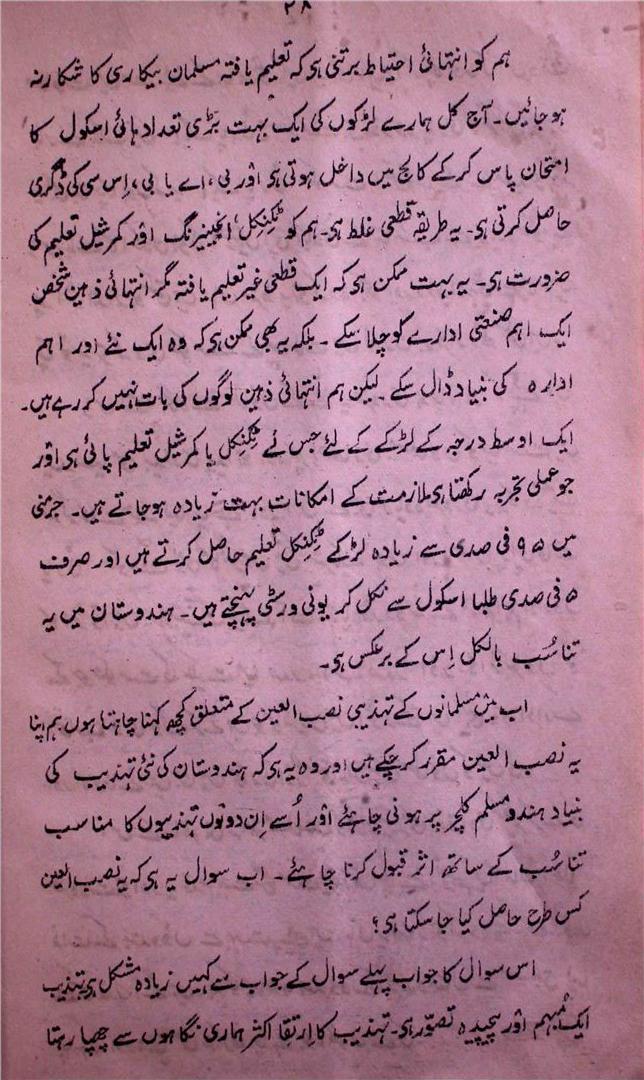 ۲۸
ہم کو انتہائی احتیاط برتنی ہی کہ تعلیم یافتہ مسلمان بیکاری کا شکار نہ
ہو جائیں۔ آج کل ہمارے لڑکوں کی ایک بہت بڑی تعداد ہائی اسکول کا
امتحان پاس کرکے کالج میں داخل ہوتی ہی اور بی، اے یا بی، اِس سی کی ڈگری
حاصل کرتی ہی۔ یہ طریقہ قطعی غلط ہی۔ ہم کو ٹکنکل، انجینیرنگ اور کمرشیل تعلیم کی
ضرورت ہی۔ یہ بہت ممکن ہی کہ ایک قطعی غیر تعلیم یافتہ مگر انتہائی ذہین شخص
ایک اہم صنعتی ادارے کو چلا سکے۔ بلکہ یہ بھی ممکن ہی کہ وہ ایک نئے اور اہم
ادارہ کی بنیاد ڈال سکے۔ لیکن ہم انتہائی ذہین لوگوں کی بات نہیں کر رہے ہیں۔
ایک اوسط درجہ کے لڑکے کے لئے جس نے ٹکنکل یا کمرشیل تعلیم پائی ہی اور
جو عملی تجربہ رکھتا ہی ملازمت کے امکانات بہت زیادہ ہو جاتے ہیں۔ جرمنی
میں ۹۵ فی صدی سے زیادہ لڑکے ٹکنکل تعلیم حاصل کرتے ہیں اور صرف
۵ فی صدی طلبا اسکول سے نکل کر یونی ورسٹی پہنچتے ہیں۔ ہندوستان میں یہ
تناسُب بالکل اِس کے برعکس ہی۔
اب میں مسلمانوں کے تہذیبی نصب العین کے متعلق کچھ کہنا چاہتا ہوں ہم اپنا
یہ نصب العین مقرر کر چکے ہیں اور وہ یہ ہی کہ ہندوستان کی نئی تہذیب کی
بنیاد ہندو مسلم کلچر پر ہونی چاہئے اور اُسے اِن دونوں تہذیبوں کا مناسب
تناسُب کے ساتھ اثر قبول کرنا چاہئے۔ اب سوال یہ ہی کہ یہ نصب العین
کس طرح حاصل کیا جا سکتا ہی؟
اس سوال کا جواب پہلے سوال کے جواب سے کہیں زیادہ مشکل ہی تہذیب
ایک مُبہم اور پیچیدہ تصوّر ہی۔ تہذیب کا اِرتقا اکثر ہماری نگاہوں سے چھپا رہتا